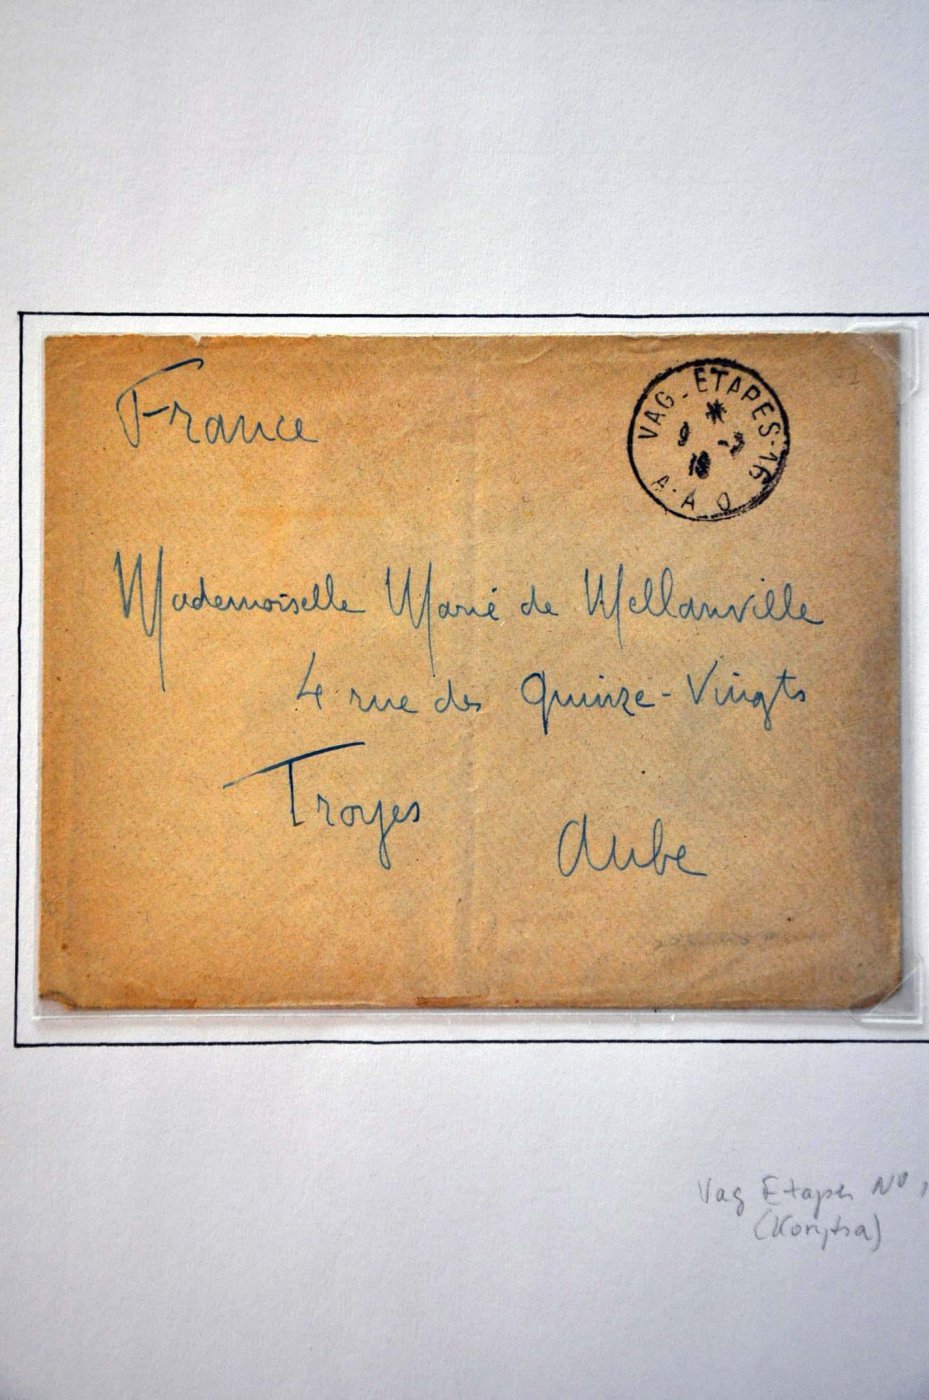 France
VAG_ETAPES-16
9 -2
18
A.A.O
Mademoiselle Marie de Mellanville
4 rue des Quinze-Vingts
Troyes
Aube
Vag Etapes No
(Korytsa)